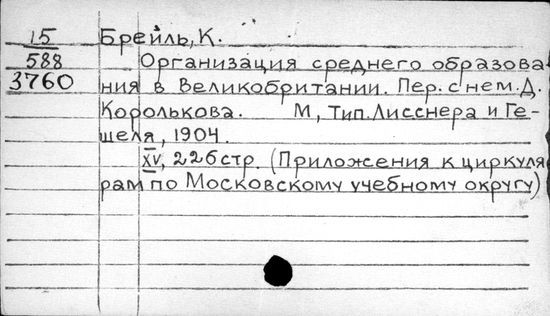 15 Брейль, К.
588 Организация среднего образова
3760 ния в Великобритании. Пер. с нем. Д.
Королькова. М, Тип. Лисснера и Ге-
шеля, 1904.
XV, 226 стр. (Приложения к циркуля
рам по Московскому учебному округу)